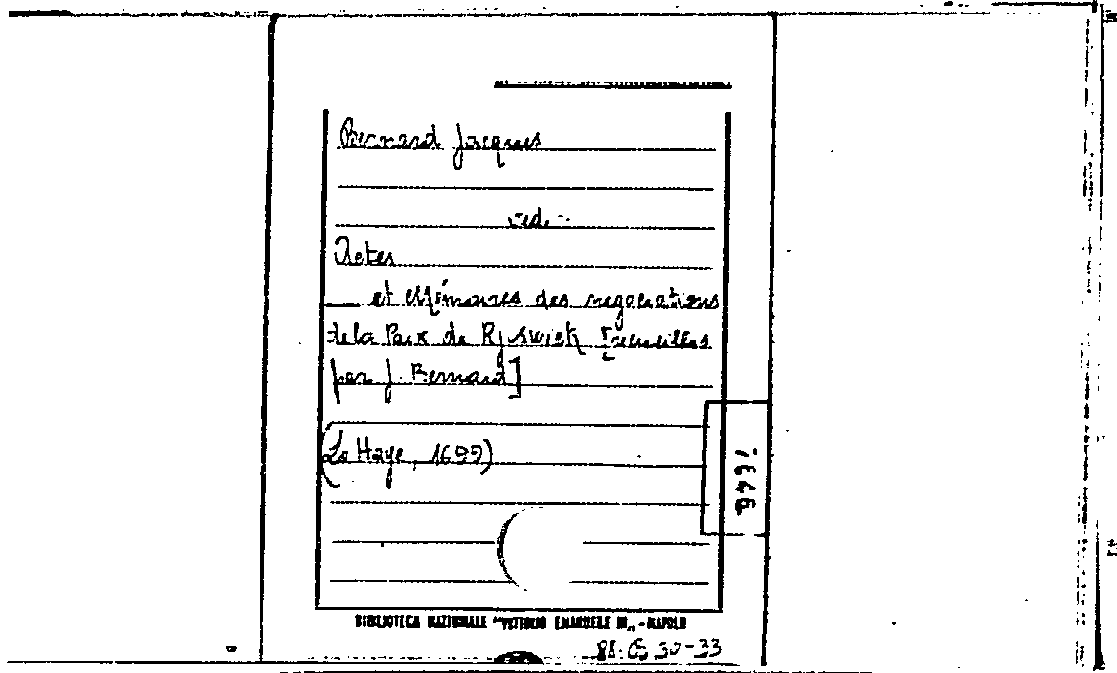 Bernard Jacques
ved.
Actes
— et Mémoires des negociations
de la Paix de Rijswick [recueilles
par J. Bernard]
(La Haye, 1699)
BIBLIOTECA NAZIONALE "VITTORIO EMANUELE III" - NAPOLI
30-33